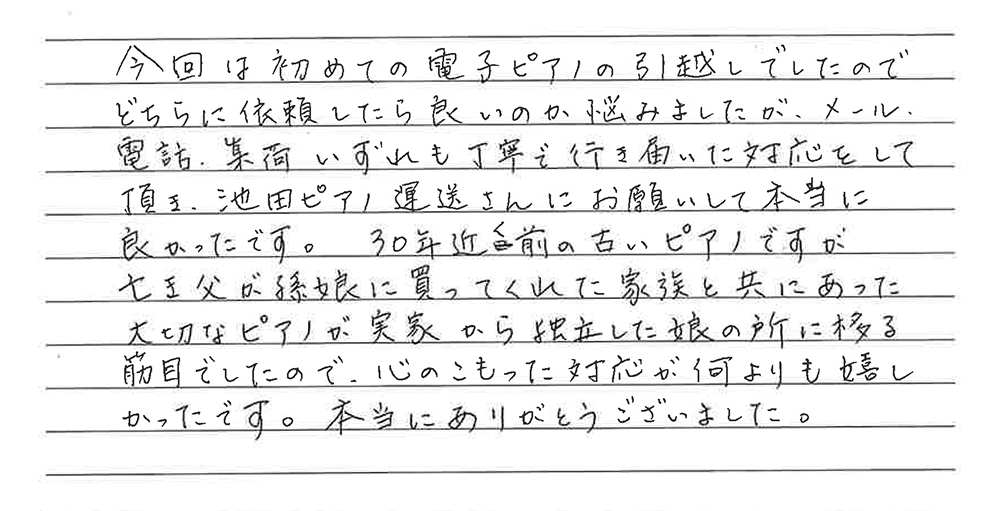 今回は初めての電子ピアノの引越しでしたので
どちらに依頼したら良いのか悩みましたが、メール、
電話、集荷いずれも丁寧で行き届いた対応をして
頂き、池田ピアノ運送さんにお願いして本当に
良かったです。 30年近く前の古いピアノですが
亡き父が孫娘に買ってくれた家族と共にあった
大切なピアノが実家から独立した娘の所に移る
節目でしたので、心のこもった対応が何よりも嬉し
かったです。本当にありがとうございました。